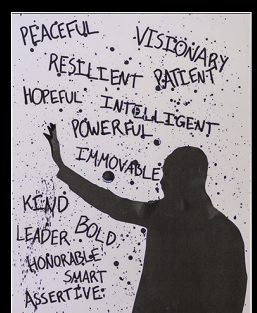 PEACEFUL
VISIONARY
RESILIENT PATIENT
HOPEFUL INTELLIGENT
POWERFUL
IMMOVABLE
KIND
LEADER BOLD
HONORABLE
SMART
ASSERTIVE